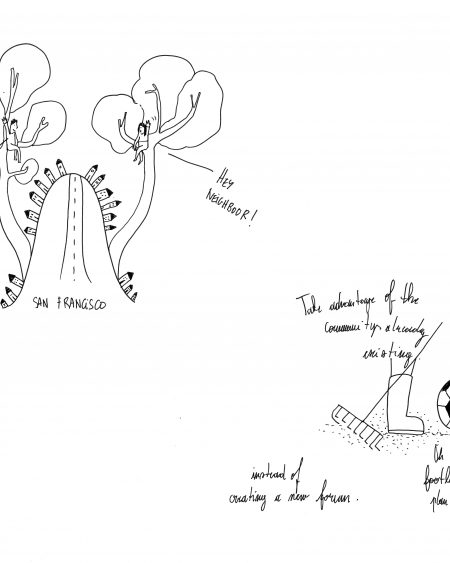 HEY
NEIGHBOOR!
SAN FRANCISCO
Take advantage of the
community already
existing
instead of
creating a new forum.
Or
footb
plan